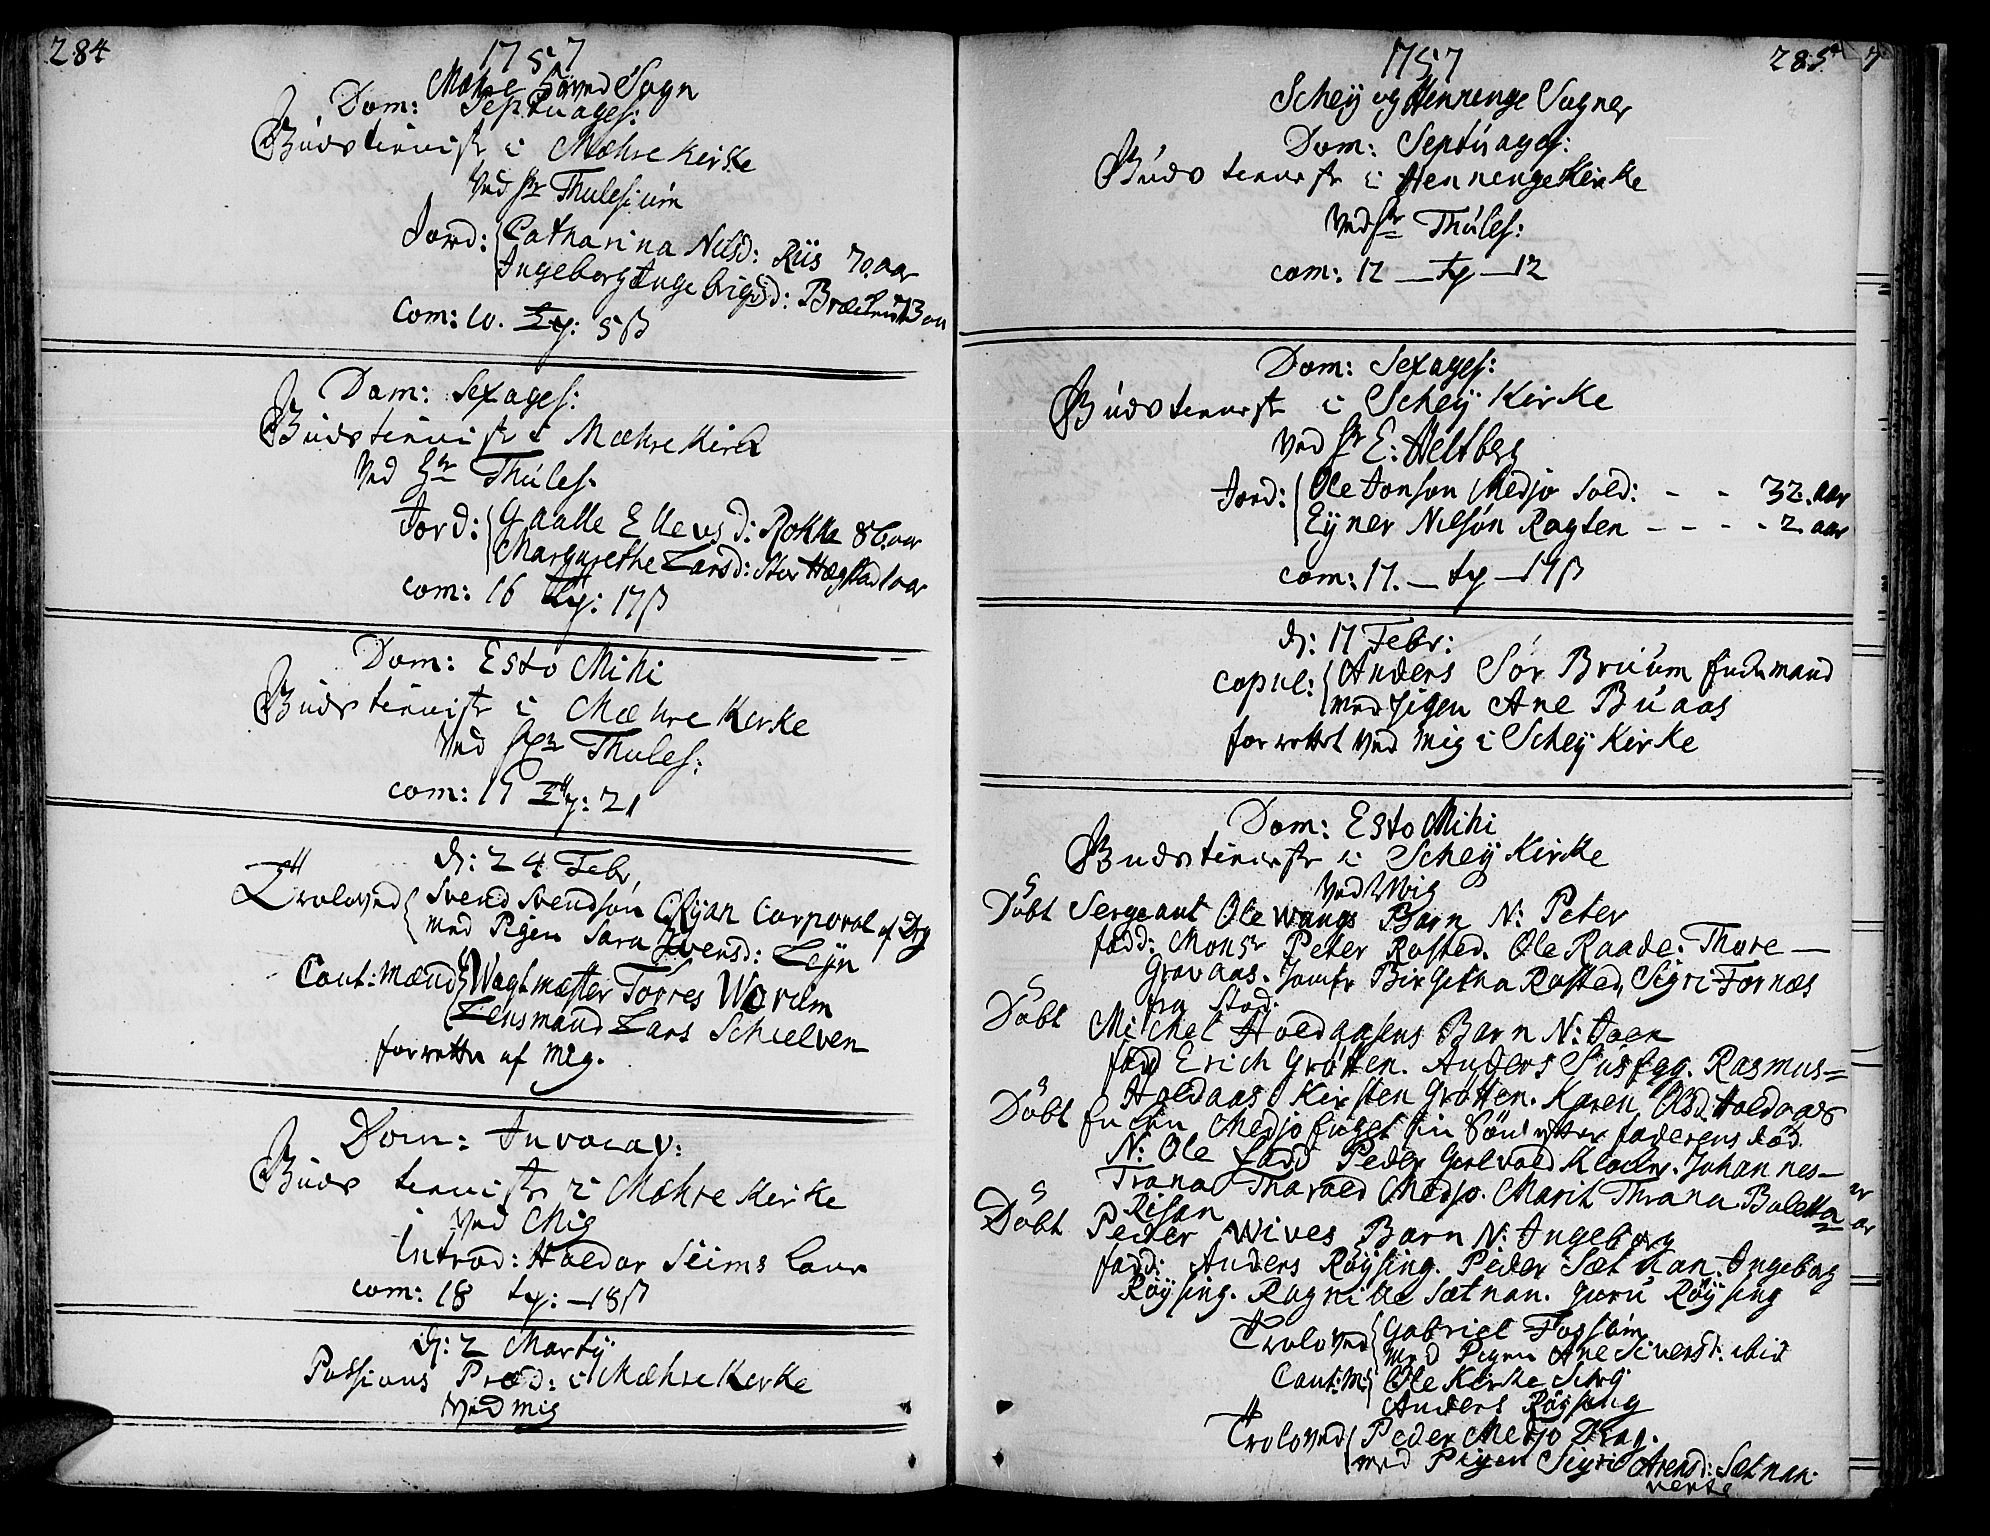 284
1757
Mæhre Sogn
Dom: Septuages:
Gudstieniste i Mæhre Kirke
Ved Hr Thulesium
Jord: Catharina Nilsd: Riis 70. aar
Ingeborg Ingebrigsd:
com: 10. Ty: 5 β
Dom: Sexages:
Gudstieniste i Mæhre Kirke
Ved Hr Thules:
Jord: Gaalle Ellevsd: Rokke 86. aar
Margarethe Larsd: Stor Hægstad 1 aar
com: 16 Ty: 17 β
Dom: Esto Mihi
Gudstieniste i Mæhre Kirke
Ved Hr Thules:
com: 19 Ty: 21
D: 24 Febr
Troloved Svend Svendsøn Ryan Corporal af Drag
med Pigen Sara Iversd: Leyn
Caut: Mænd Wagtmæster Torres Worum
Lensmand Lars Schielven
forrettn af mig.
Dom: Invocav:
Gudstieniste i Mæhre Kirke
ved Mig
Introd: Haldor Seims Kone
com: 18 ty: 18 β
D: 2 Martij
Passions Præd: i Mæhre Kirke
ved mig
1757
285
Scheÿ og Hennenge Sogner
Dom: Septuages:
Gudstieniste i Hennenge Kirke
Ved Hr Thules:
com: 12 — ty — 12
Dom: Sexages:
Gudstieniste i Scheÿ Kirke
Ved Hr E: Heltberg
Jord: Ole Jonson Medjo Sold: - - 32. aar
Eyner Nilsøn Ragten - - - - 2. aar
com: 17. — ty — 19 β
D: 17 Febr:
Copul: Anders Sør Bruum Enkemand
med Pigen Ane Buaas
forrettet ved mig i Scheÿ Kirke
Dom: Esto Mihi
Gudstieniste i Scheÿ Kirke
Ved Mig
Døbt Sergeant Ole Wangs Barn N: Peter
fadd: Monsr Peter Rosted. Ole Raade. Thore —
Gravaas. Jomfr Birgitha Rosted, Sigri Fornæs
fra Stod.
Døbt Michel Holdaasens Barn N: Joen
fad Erich Grøtten. Anders Rasmus=
Holdaas Kirsten Grøtten. Karen Olsd. Holdaas
Døbt Enken Medjo hendes Søn efter faderens død.
N: Ole fadd Peder Klocker. Johannes —
Trana Tharald Medjo. Marit Thrana Boletta
Risan
Døbt Peder Wives Barn N: Ingeborg
fadd: Anders Røÿsing. Peder Sætnan. Ingeborg
Røÿsing. Ragnilde Sætnan. Guru Røÿsing
Troloved Gabriel Fossum
med Pigen Ane Siversd: ibid
Caut: M: Ole Kirke Scheÿ
Anders Røysing
Troloved Peder Medjo Drag.
med Pigen Sigri Arensd: Sætnan.
verte